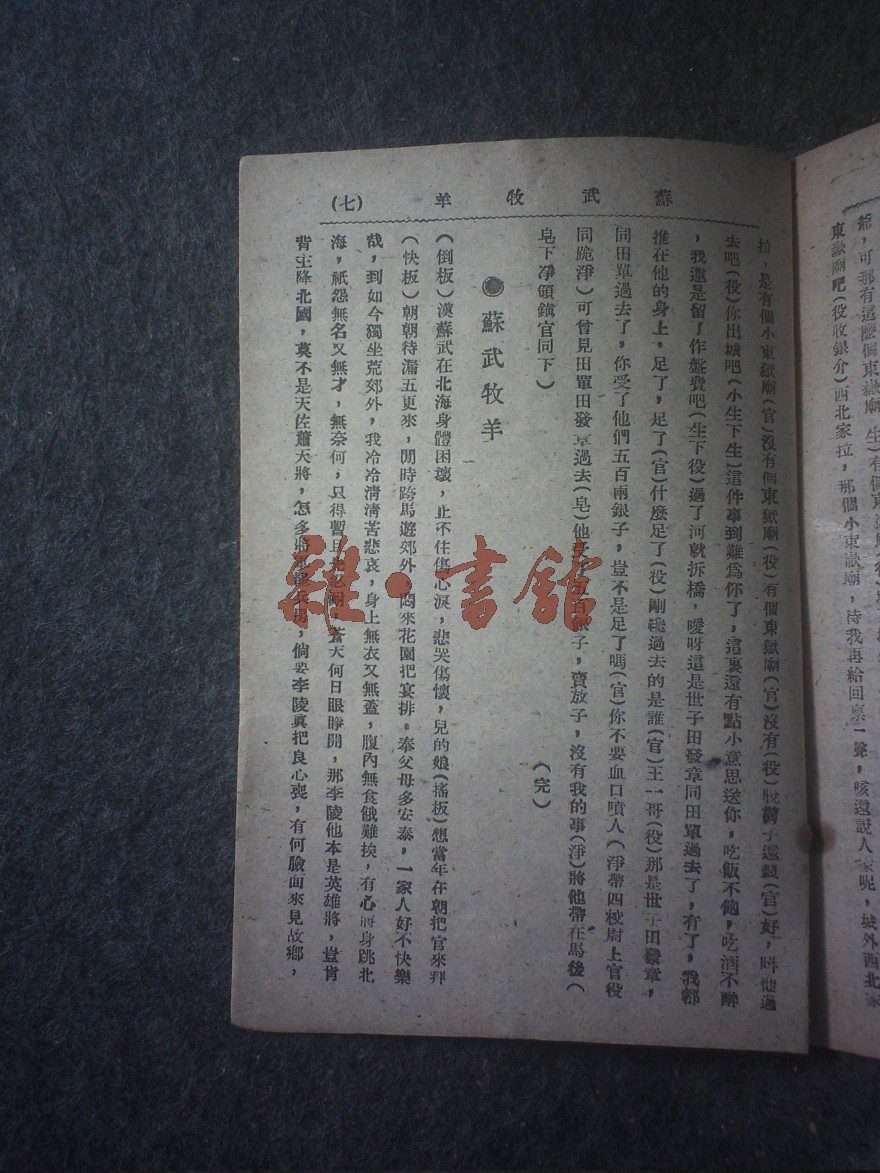 爺，可那有這麽個東嶽廟
東嶽廟吧(役收銀介)西北家拉，那個小東嶽廟，待我再給回稟一聲，咳還說人家呢，城外西北
蘇武牧羊 (七)
拉，是有個小東嶽廟(官)沒有個東嶽廟(役)有個東嶽廟(官)沒有(役)脫褲子還錢(官)好，叫他過
去吧(役)你出城吧(小生下生)這件事到難爲你了，這裏還有點小意思送你，吃飯不飽，吃酒不醉
，我還是留了作盤費吧(生下役)過了河就拆橋，噯呀這是世子田發章同田單過去了，有了，我都
推在他的身上，足了，足了(官)什麽足了(役)剛纔過去的是誰(官)王一哥(役)那是世子田發章，
同田單過去了，你受了他們五百兩銀子，豈不是足了嗎(官)你不要血口噴人(淨帶四校尉上官役
同跪淨)可曾見田單田發章過去(皂)他受了五百銀子，賣放子，沒有我的事(淨)將他帶在馬後(
皂下淨領鎮官同下) (完)
●蘇武牧羊
(倒板)漢蘇武在北海身體困壞，止不住傷心淚，悲哭傷懷，兒的娘(搖板)想當年在朝把官來拜
(快板)朝朝待漏五更來，閒時跨馬遊郊外，悶來花園把宴排。奉父母多安泰，一家人好不快樂
哉，到如今獨坐荒郊外，我冷冷清清苦悲哀，身上無衣又無蓋，腹內無食餓難挨，有心將身跳北
海，祇怨無名又無才，無奈何，只得暫且 耐，蒼天何日眼睜開，那李陵他本是英雄將，豈肯
背主降北國，莫不是天佐蕭天將，怎多 兵 ，倘 李陵眞把良心喪，有何臉面來見故鄉，
雜·書館